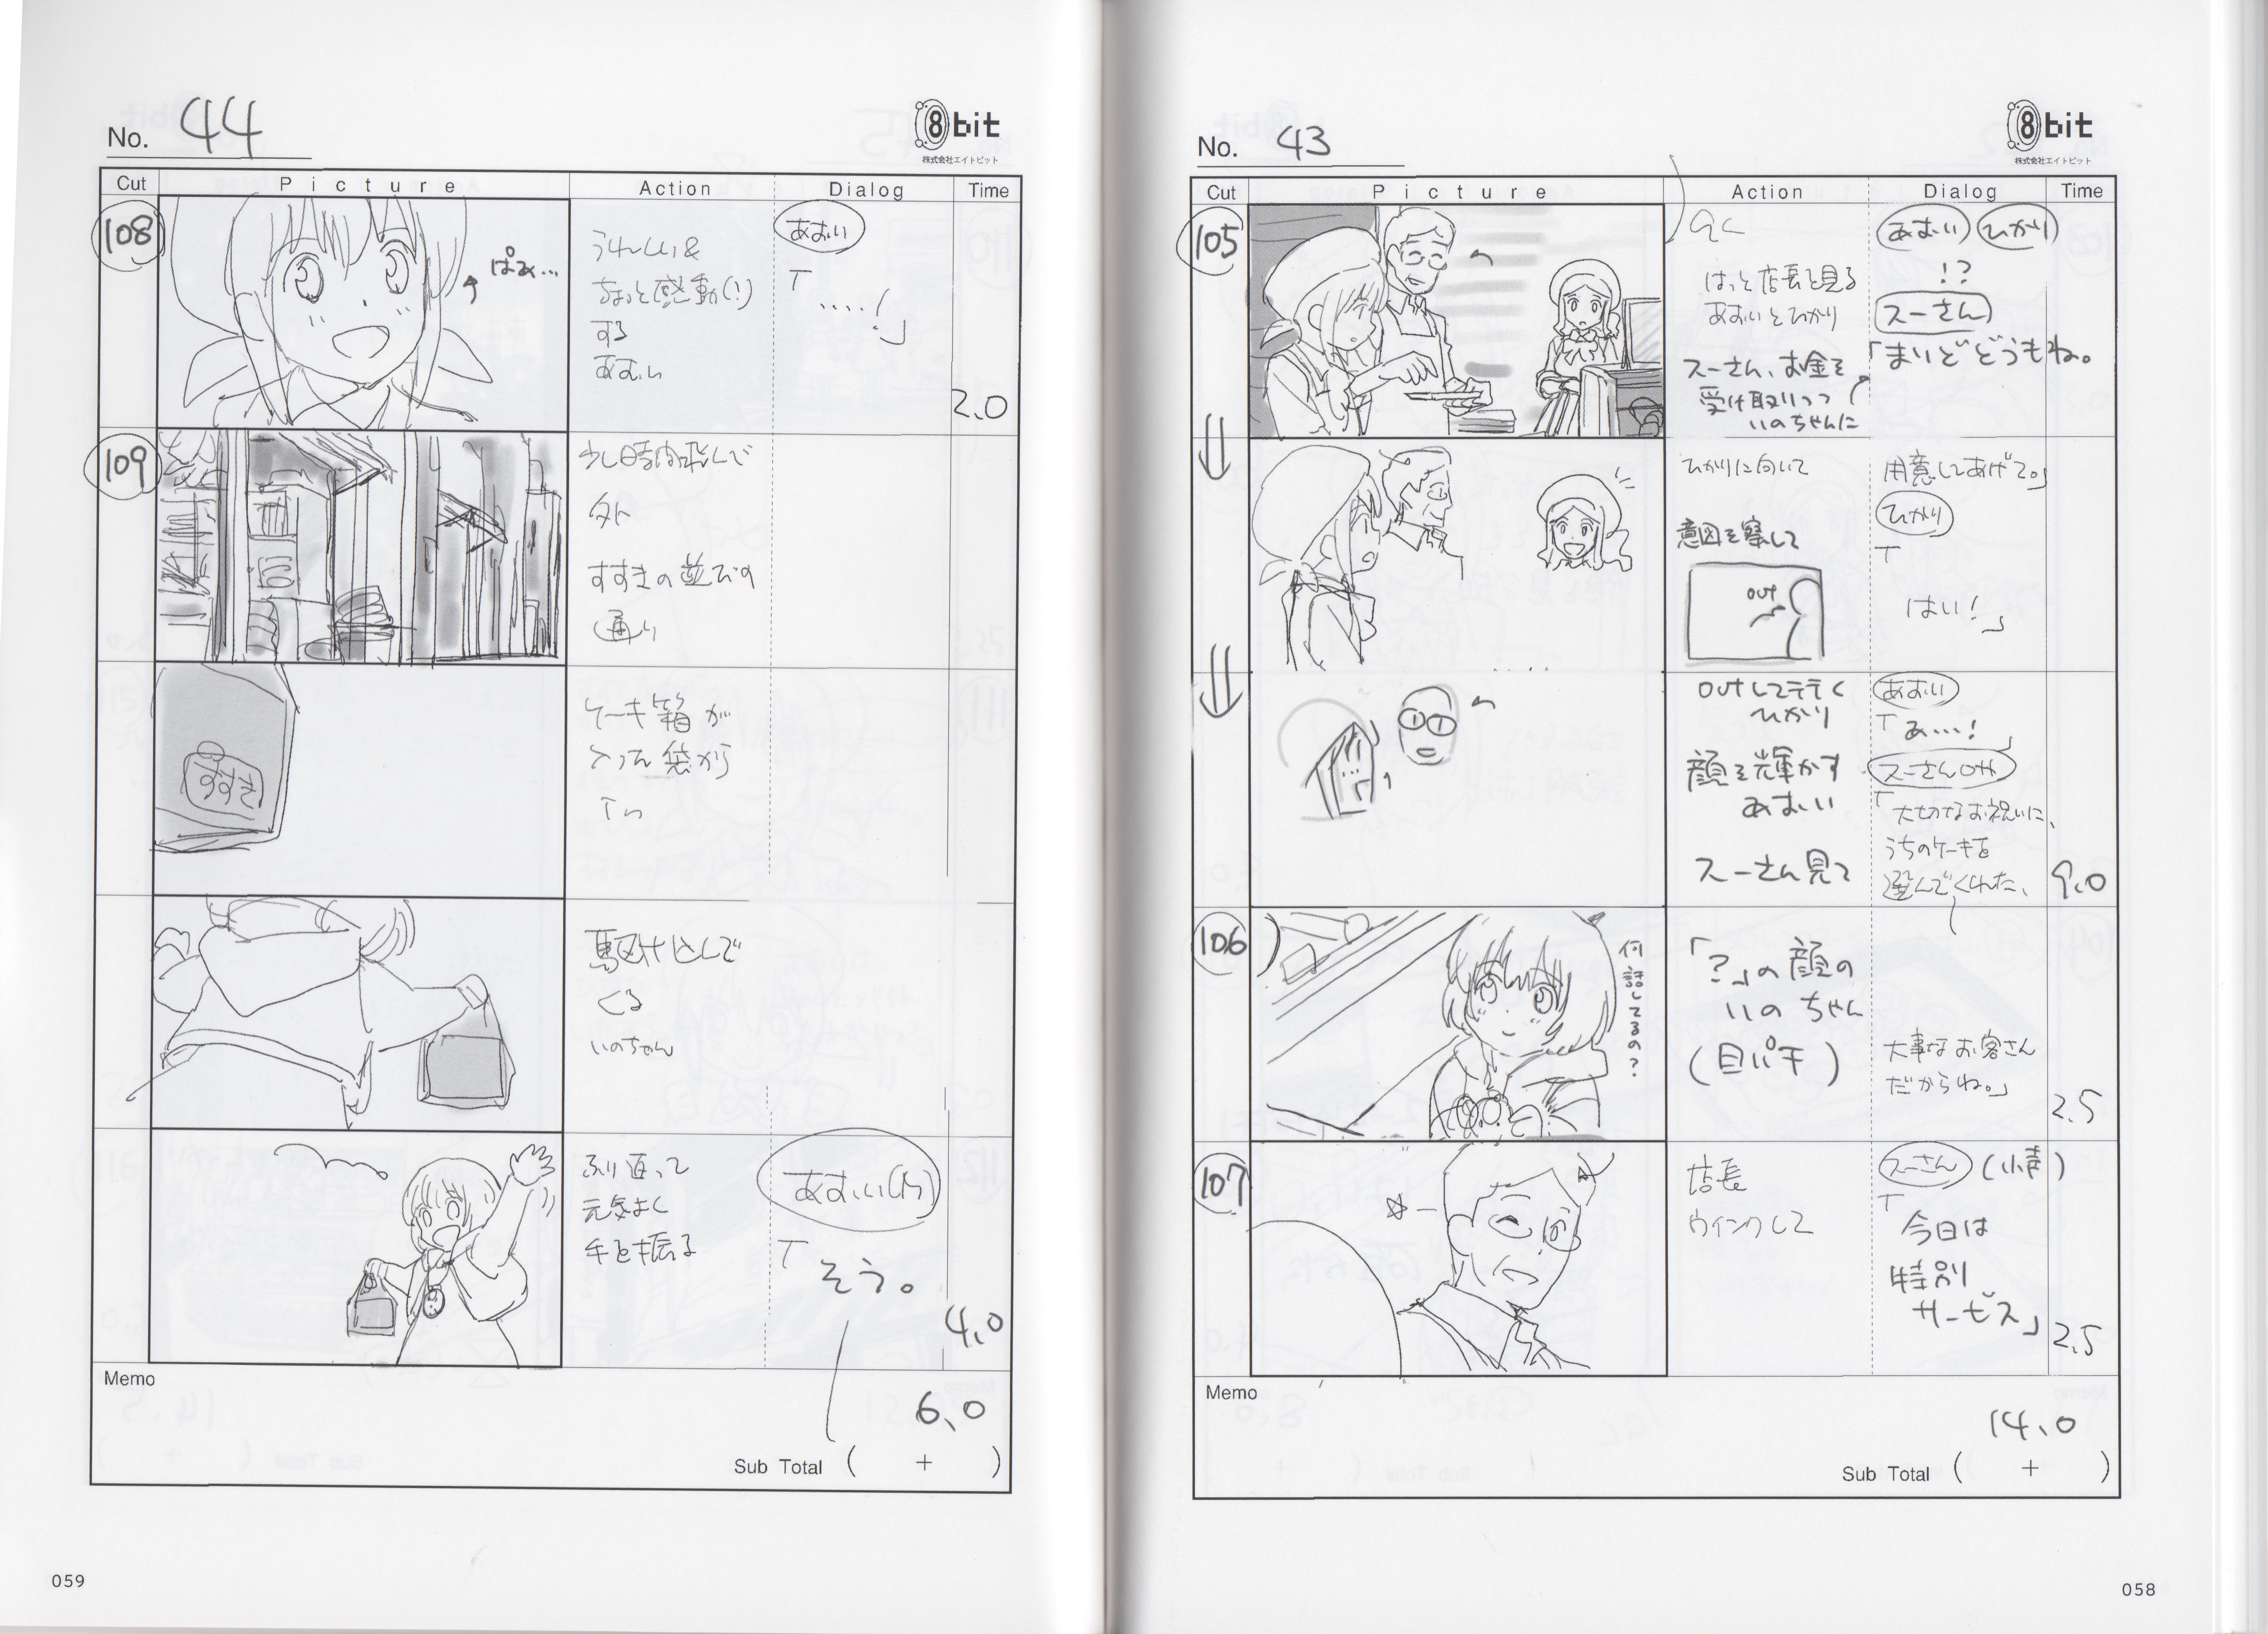 No. 43
8bit
株式会社エイトビット
Cut Picture Action Dialog Time
105
あおい ひかり
はっと店長を見る
あおいとひかり
!?
スーさん
スーさん、お金を
受け取りつつ
いのちゃんに
「まいどどうもね。
ひかりに向いて
用意してあげて。」
意図を察して
ひかり
「
はい!」
OUT
OUTして行く
ひかり
あおい
「あ…!」
顔を輝かす
あおい
スーさん見て
「大切なお祝いに、
うちのケーキを
選んでくれた、
9.0
106
何話してるの?
「?」の顔の
いのちゃん
(目パチ)
大事なお客さん
だからね。」
2.5
107
店長
ウインクして
スーさん (小声)
「
今日は
特別
サービス」
2.5
Memo
14.0
Sub Total ( + )
058
No. 44
8bit
株式会社エイトビット
Cut Picture Action Dialog Time
108
ぱぁ…
うれしい&
ちょっと感動(!)
する
あおい
あおい
「
....!」
2.0
109
少し時間飛んで
外
すすきの並びの
通り
すすき
ケーキ箱が
入った袋から
駆け込んで
くる
いのちゃん
ふり返って
元気よく
手を振る
「
そう。
4.0
Memo
6.0
Sub Total ( + )
059